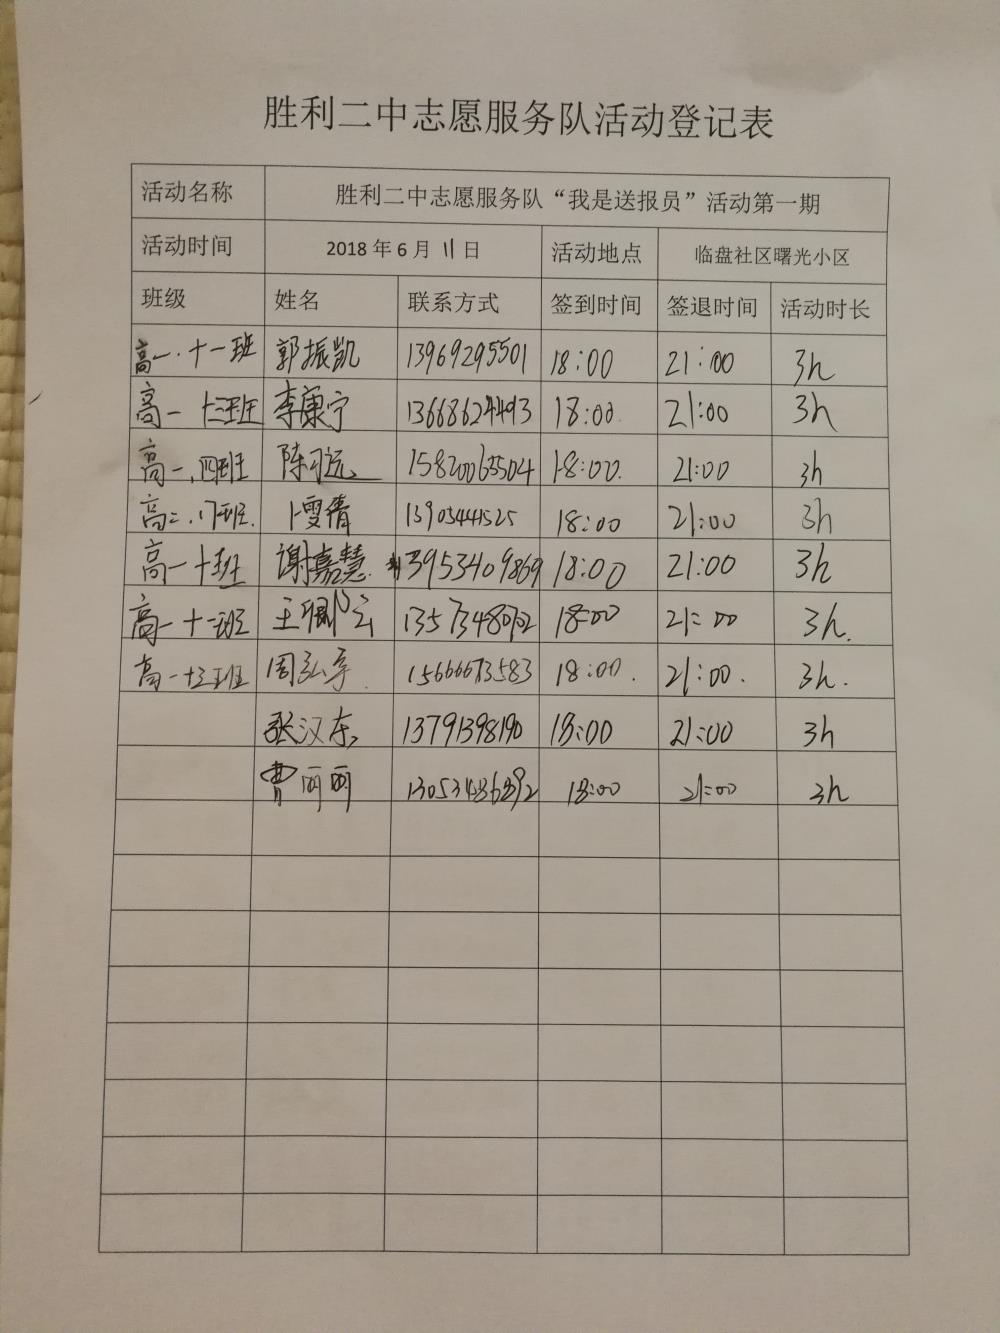 胜利二中志愿服务队活动登记表
活动名称 胜利二中志愿服务队“我是送报员”活动第一期
活动时间 2018年6月11日 活动地点 临盘社区曙光小区
班级 姓名 联系方式 签到时间 签退时间 活动时长
高一.十一班 郭振凯 13969295501 18:00 21:00 3h
高一十三班 李康宁 13668624493 18:00 21:00 3h
高一.四班 陈可远 15820063504 18:00. 21:00 3h
高二.八班. 卜雯倩 13905441525 18:00 21:00 3h
高一十班 谢嘉慧 13953409869 18:00 21:00 3h
高一十一班 王 18:00 21:00 3h.
高一十三班 周弘宇 18:00. 21:00. 3h.
张汉东 13791398190 18:00 21:00 3h
曹丽丽 18:00 21:00 3h